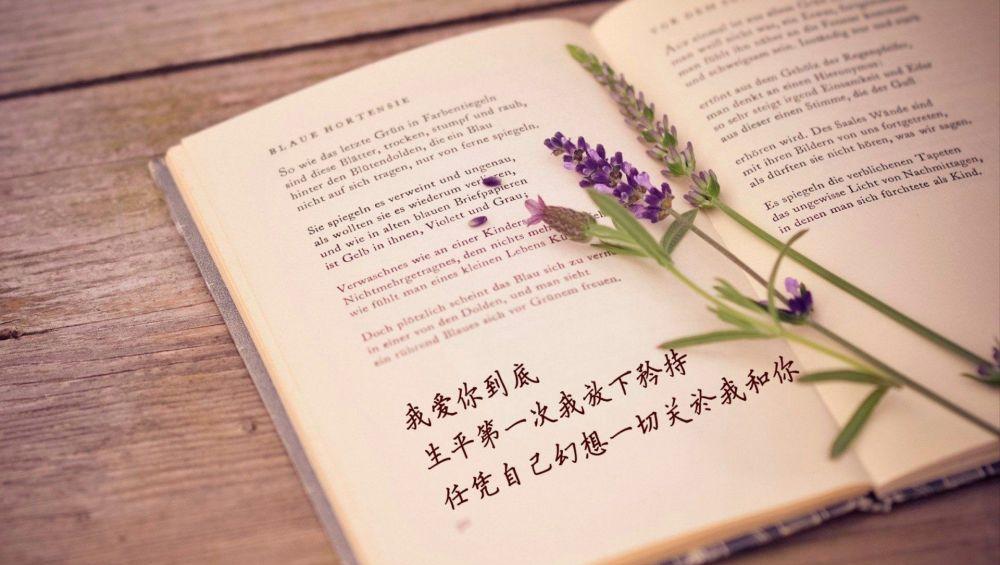 BLAUE HORTENSIE
So wie das letzte Grün in Farbentiegeln
sind diese Blätter, trocken, stumpf und rauh,
hinter den Blütendolden, die ein Blau
nicht auf sich tragen, nur von ferne spiegeln.
Sie spiegeln es verweint und ungenau,
als wollten sie es wiederum
und wie in alten blauen Briefpapieren
ist Gelb in ihnen, Violett und Grau;
Verwaschnes wie an einer Kinders
Nichtmehrgetragnes, dem nichts meh
wie fühlt man eines kleinen Lebens K
Doch plötzlich scheint das Blau sich zu verne
in einer von den Dolden, und man sieht
ein rührend Blaues sich vor Grünem freuen.
我爱你到底
生平第一次我放下矜持
任凭自己幻想一切关於我和你
VOR DEM
man fühlt ihn näher an die Fenster
und schweigsam sein. Inständig nur und
ertönt aus dem Gehölz der Regenpfeifer,
man denkt an einen Hieronymus:
so sehr steigt irgend Einsamkeit und Eifer
aus dieser einen Stimme, die der Guß
erhören wird. Des Saales Wände sind
mit ihren Bildern von uns fortgetreten,
als dürften sie nicht hören, was wir sagen.
Es spiegeln die verblichenen Tapeten
das ungewisse Licht von Nachmittagen,
in denen man sich fürchtete als Kind.